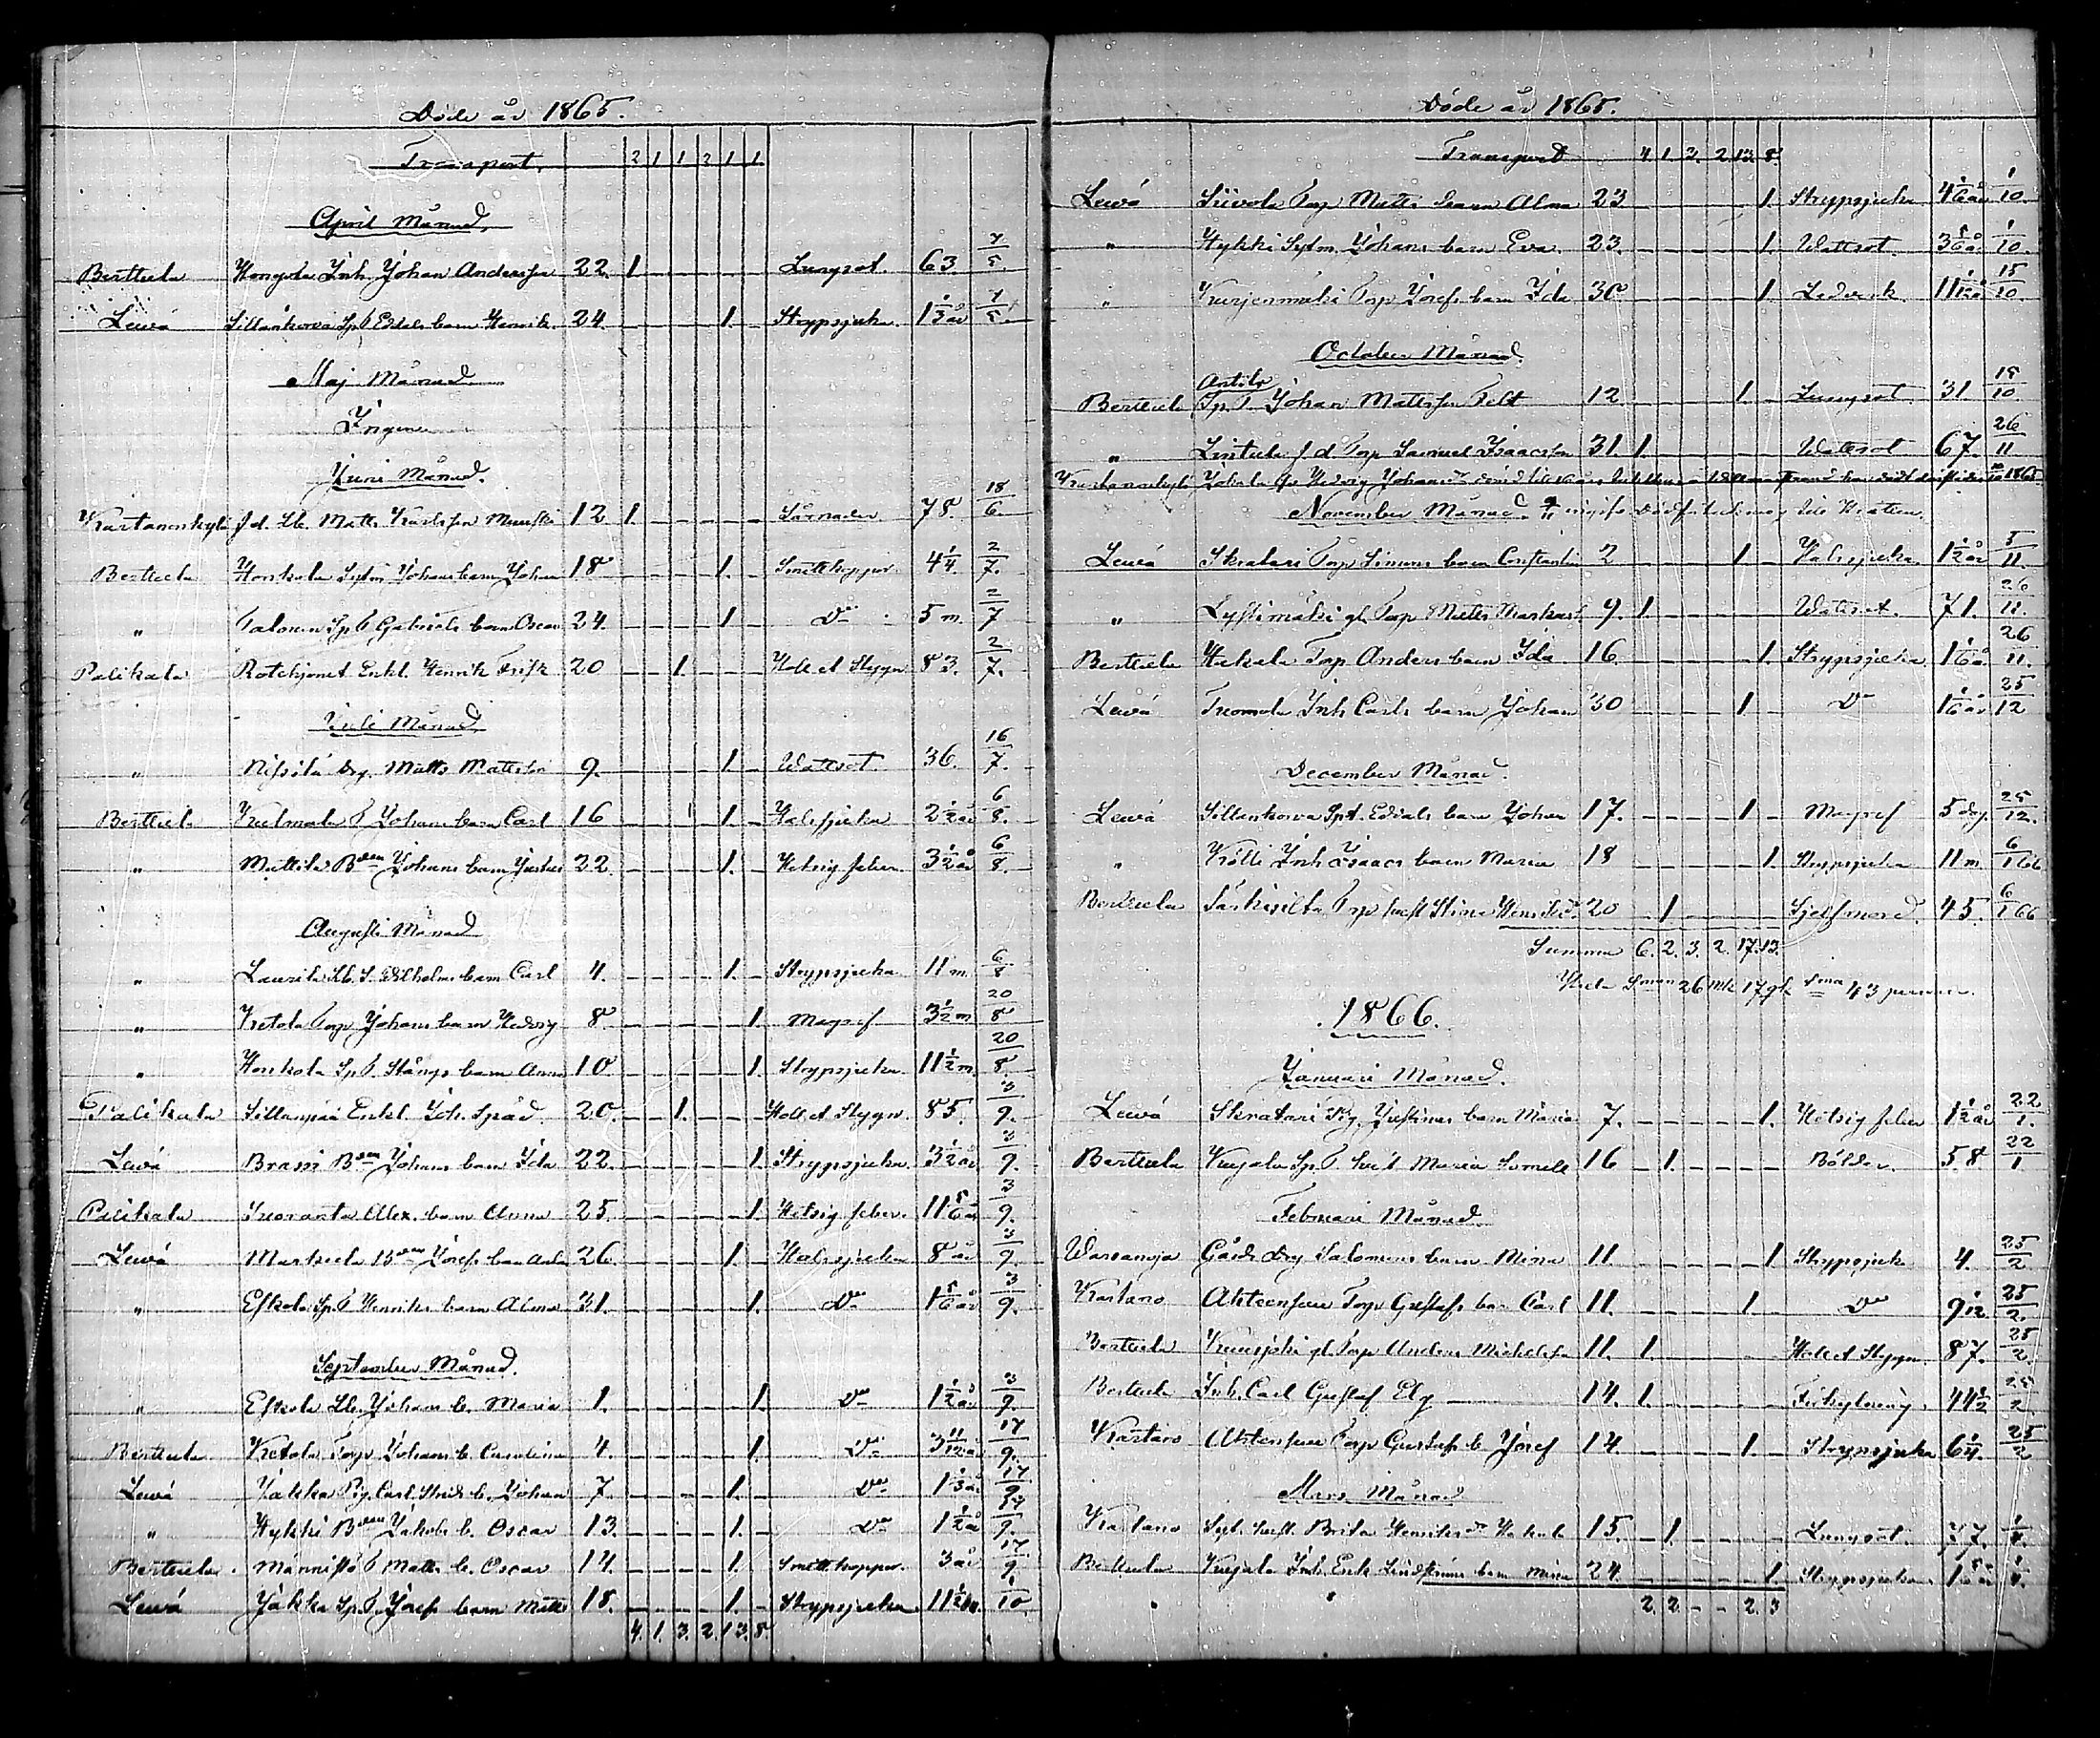 Döde år 1865.
Transport. 2 1 1 2 1 1
April Månad.
Berttula Hongola Inh. Johan Andersson 22. 1. Lungsot. 63. 7/5.
Lewä Sillankorva Sp.T. Edvals barn Henrik 24. 1. Strypsjuka. 1 1/3 år 7/5
Maj Månad.
Ingen
Juni Månad.
Kartanonkylä f.d. Lb. Matts Karlsson 12 1. Sårnader 78. 18/6.
Berttula Honkola Sytm Johans barn Johan 18 1. Smittkoppor 4 1/4. 2/7.
" Talonen Sp.T. Gabriels barn Oscar 24. 1 Do 5 m. 2/7
Palikala Rotehjonet Enkl. Henrik Frisk 20 1. Håll et Styng 83. 2/7.
Juli Månad
" Nissilä Drg. Matts Mattsson 9. 1. Wattsot. 36. 16/7.
Berttula T. Johans barn Carl 16 1. Halssjuka 2 1/2 år 6/8.
" Mattila Johans barn 22. 1. Hetsig feber. 3 1/2 år 6/8.
Augusti Månad
" Laurila Lb. S. Wilhelms barn Carl 4. 1. Strypsjuka 11 m. 6/8
" Ketola Torp Johans barn Hedvig 8. 1. Magref 3 1/2 m 20/8
" Honkola Sp.T. Stångs barn Anna 10. 1. Strypsjuka. 11 1/2 m. 20/8.
Palikala Sillanpää Enkl. Joh. Späd. 20. 1. Håll et Styng. 85. 3/9.
Lewä Brassi Johans barn Ida 22. 1. Strypsjuka. 3 1/2 år 3/9.
Palikala Alex. barn Anna 25. 1. Hetsig feber. 11 5/6 år 3/9.
Lewä Markula Josefs barn 26. 1. Halssjuka 8 år 3/9.
" Eskola Sp.T. Henriks barn Alma 31. 1. Do 1 5/6 år 3/9.
September Månad.
" Eskola Lb. Johans b. Maria 1. 1. Do 1 1/2 år 3/9.
Berttula Ketola Torp Johans b. Carolina 4. 1. Do 3 11/12 år 17/9.
Lewä Jakka Carl b. Johan 7. 1. Do 1 1/3 år 17/9
" Hykki Jakobs b. Oscar 13. 1. Do 1 1/2 år 17/9.
Berttula. Männistö T. Matts b. Oscar 14. 1. Smittkoppor. 3 år 17/9
Lewä Jakka Sp.T. Josefs barn Matts 18. 1. Strypsjuka 11 1/2 m. 1/10.
4. 1. 3. 2. 13. 8.
Döde år 1865.
Transport 4. 1. 3. 2. 13. 8.
Lewä Siivola Torp Matts barn Alma 23 1. Strypsjuka 4 1/6 år 1/10.
" Hykki Sytm. Johans barn Eva 23. 1. Wattsot. 3 5/6 år 1/10.
" Kurjenmäki Torp Josefs barn Ida 30 1. Ledverk 11 1/12 år 15/10.
October Månad.
Anttila
Berttula Sp.T. Johan Mattsson Telt 12. 1. Lungsot. 31 15/10.
" Lintula f.d. Torp Samuel Isaacsson 31. 1. Wattsot 67. 26/11
Kartanonkylä Hedvig
November Månad.
Lewä Skratari Torp Simons barn Constantin 2 1. Halssjuka. 1 1/2 år 5/11.
" Lystimäki gl. Torp Matts 9. 1. Wattsot. 71. 26/11.
Berttula Hakala Torp Anders barn Ida 16. 1. Strypsjuka 1 1/6 år 26/11.
Lewä Tuomola Inh. Carls barn Johan 30 1. Do 1 1/6 år 25/12
December Månad.
Lewä Sillankorva Sp.T. Edvals barn Johan 17. 1. Magref 5 dag. 25/12.
" Kölli Inh. Isaacs barn Maria 18 1. Strypsjuka 11 m. 6/1 66
Berttula Särkisilta Torp hust. Stina Henriksdr. 20 1. Sjelfmord 45. 6/1 66
Summa 6. 2. 3. 2. 17. 13.
26 mk 17 qk Sma 43 personer.
1866.
Januari Månad.
Lewä Skratari Justinas barn Maria 7. 1. Hetsig feber 1 1/2 år 22/1.
Berttula Kujala Sp.T. Maria 16 1. Bölder. 58 22/1
Februari Månad
Warsanoja Gårds drg Salomons barn Mina 11. 1 Strypsjuka 4. 25/2
Kartano Ahtensuu Torp Gustafs barn Carl 11. 1. Do 9 1/12 25/2.
Berttula gl. Torp Anders Michelsson 11. 1. Håll et Styng. 87. 25/2.
Berttula Inh. Carl Gustaf Elg 14. 1. Förkylning. 44 1/2 25/2
Kartano Ahtensuu Torp Gustafs b. Josef 14. 1. Strypsjuka 6 1/4. 25/2
Mars Månad
Kartano hust. Brita Henriksdr 15. 1. Lungsot. 37. 1/4.
Berttula Kujala Inh. Erik Lindströms barn Mina 24. 1. Strypsjuka 1 5/6 år 1/4.
2. 2. - - 2. 3